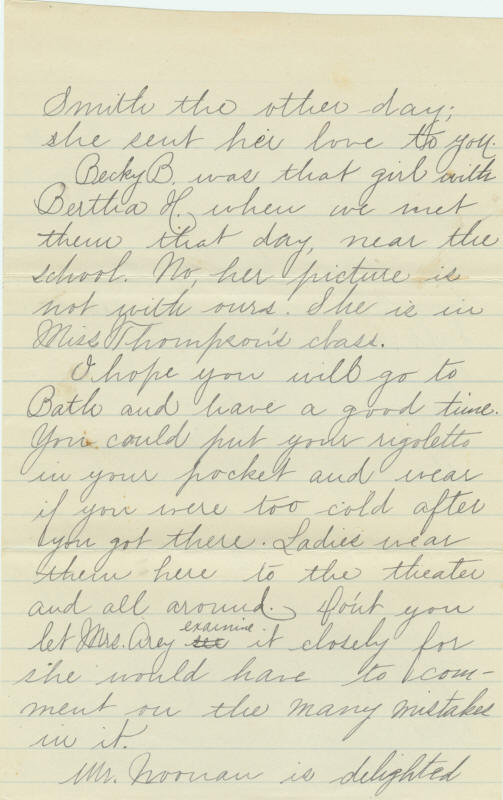 Smith the other day;
she sent her love to you.
Becky B. was that girl with
Bertha H. when we met
them that day, near the
school. No, her picture is
not with ours. She is in
Miss Thompson's class.
I hope you will go to
Bath and have a good time.
You could put your rigoletto
in your pocket and wear
if you were too cold after
you got there. Ladies wear
them here to the theater
and all around. Don't you
let Mrs. Arey see examine it closely for
she would have to com-
ment on the many mistakes
in it.
Mr. Noonan is delighted